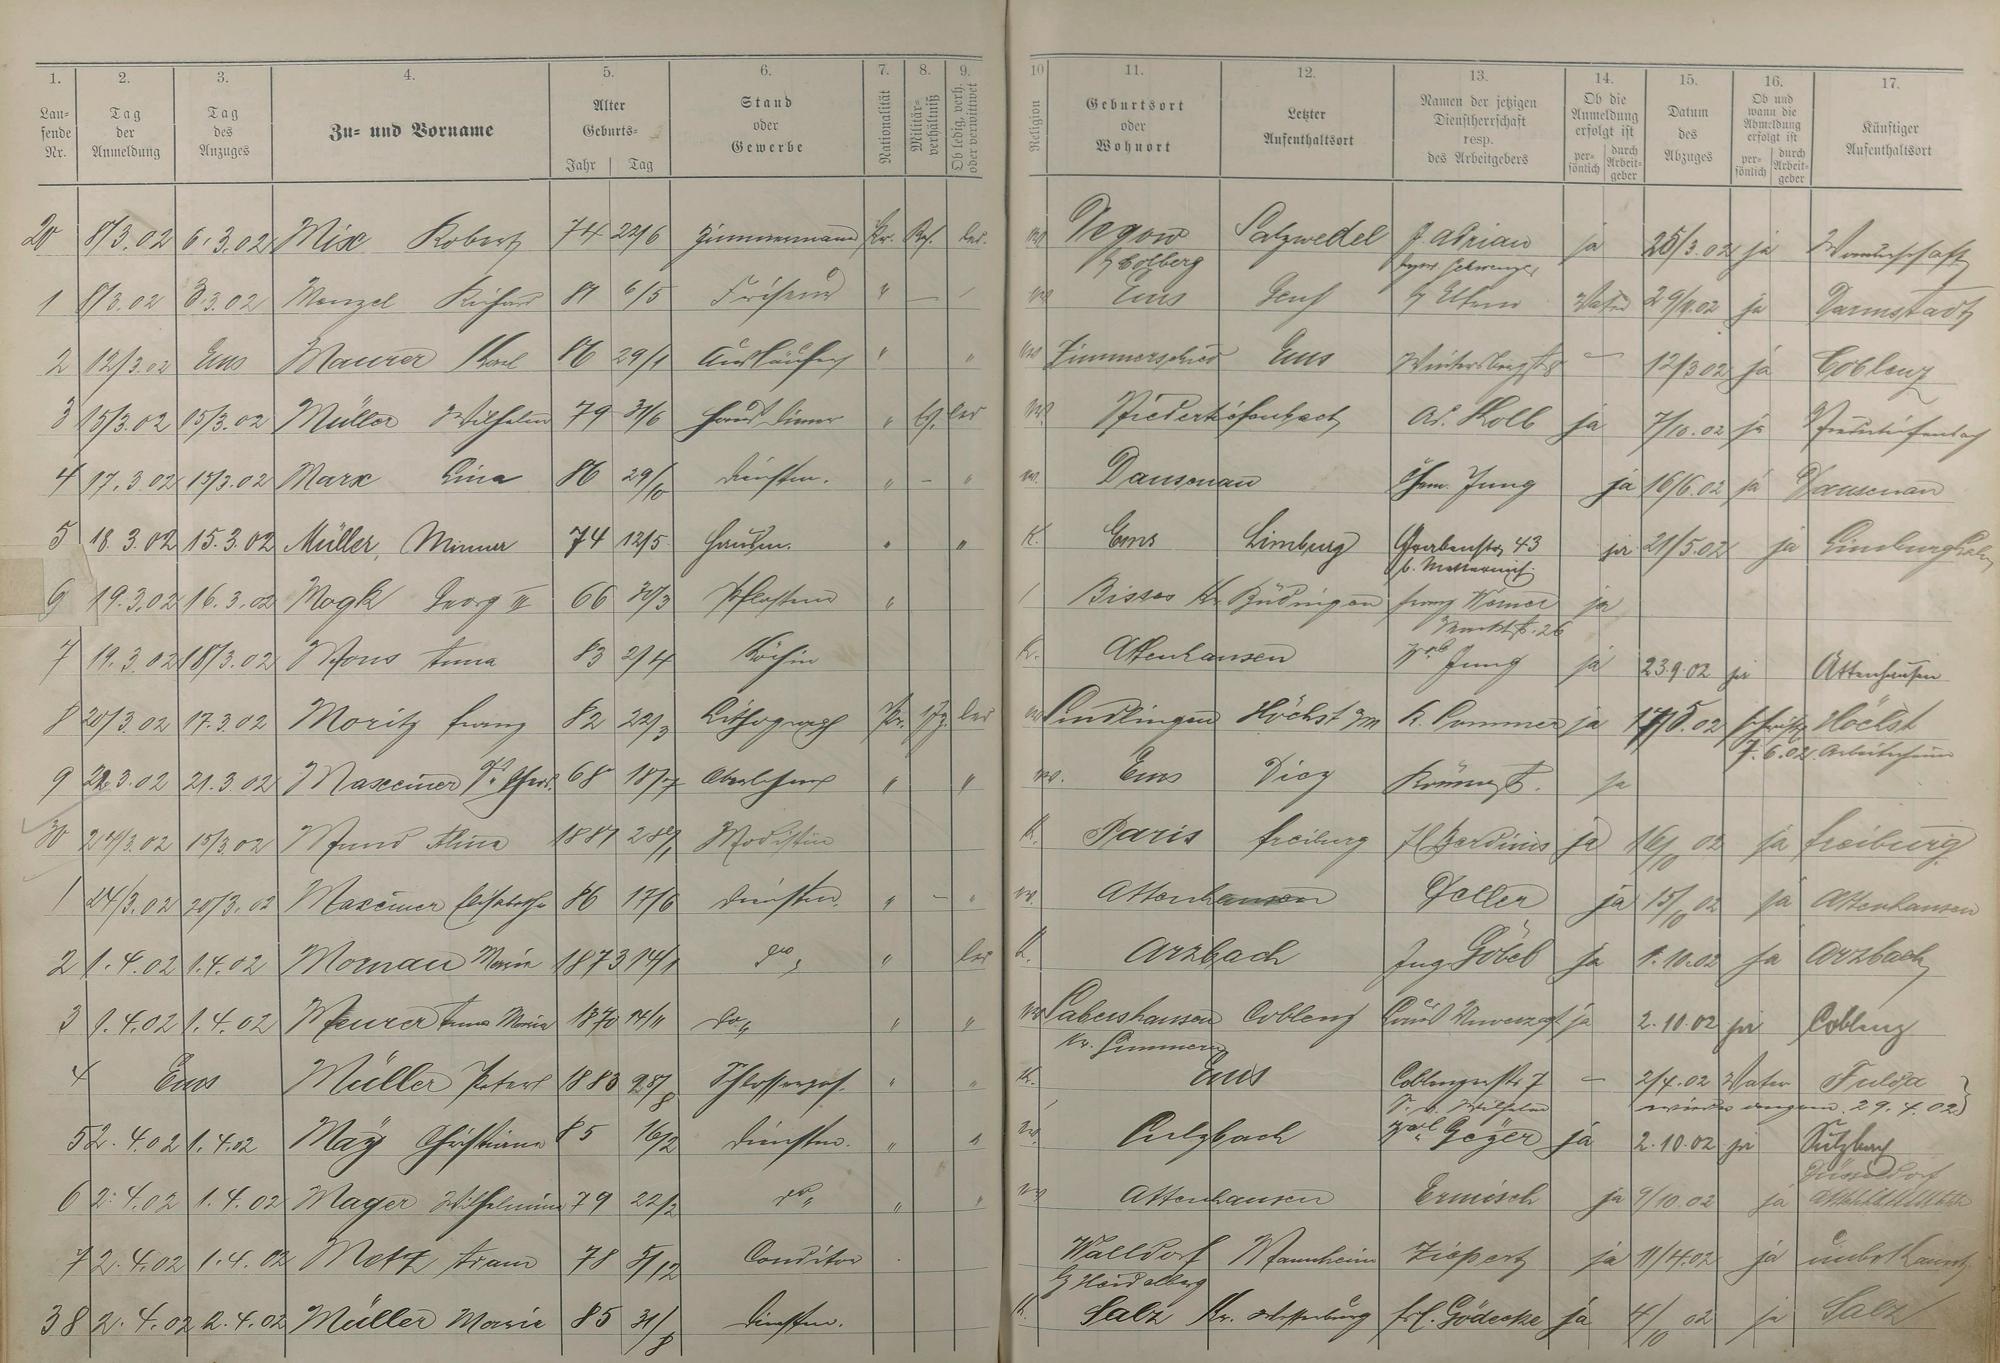 1. 2. 3. 4. 5. 6. 7. 8. 9. 10 11. 12. 13. 14. 15. 16. 17.
Lau-
fende
Nr.
Tag
der
Anmeldung
Tag
des
Anzuges
Zu- und Vorname
Alter
Geburts-
Jahr Tag
Stand
oder
Gewerbe
Nationalität
Militär-
verhältniß
Ob ledig, verh.
oder verwittwet
Religion
Geburtsort
oder
Wohnort
Letzter
Aufenthaltsort
Namen der jetzigen
Dienstherrschaft
resp.
des Arbeitgebers
Ob die
Anmeldung
erfolgt ist
per-
sönlich
durch
Arbeit-
geber
Datum
des
Abzuges
Ob und
wann die
Abmeldung
erfolgt ist
per-
sönlich
durch
Arbeit-
geber
Künftiger
Aufenthaltsort
20 8/3.02 6.3.02 Mix Robert 74 22/6 Zimmermann Pr. Res. led. Salzwedel J. Adrian ja 25/3.02 ja Wanderschaft
1 8/3.02 3.3.02 Menzel Richard 6/5 Friseur " — Ems Genf Eltern Vater ja Darmstadt
2 12/3.02 Ems Maurer Karl 86 29/1 Ausläufer " " Zimmerschied Ems — 12/3 02 ja Coblenz
3 15/3.02 15/3.02 Müller Wilhelm 79 31/6 Hausdiener " led Niedertiefenbach Ad. Kolb ja 7/10.02 ja Niedertiefenbach
4 17.3.02 15/3.02 Marx Lina 86 29/10 Dienstm. " — " Dausenau Jung ja 16/6.02 ja Dausenau
5 18.3.02 15.3.02 Müller, Minna 74 12/5 Hausm. " " K. Ems Limburg Grabenstr. 43 ja 21/5.02 ja Limburg
6 19.3.02 16.3.02 Mogk Georg III 66 Pflasterer " Bisses Kr. Büdingen Franz Werner ja
Marktst. 26
7 19.3.02 18/3.02 Mons Anna 83 2/4 Köchin K. Attenhausen Jung ja 23.9.02 ja Attenhausen
8 20/3.02 17.3.02 Moritz Franz 82 22/3 Lithograph Pr. led Sindlingen Höchst a/M K. Sommer ja 17/5.02 Höchst
7.6.02
9 22.3.02 21.3.02 Maxeiner 68 18/7 " " Ems Diez Römerst. ja
30 24/3.02 15/3.02 Mund Alina Modistin K. Paris Freiburg ja 16/10 02 ja Freiburg
1 24/3.02 20/3.02 Maxeiner Elisabeth 86 17/6 Dienstm. " — " Attenhausen ja 15/10 02 ja Attenhausen
2 1.4.02 1.4.02 Mornau Maria 1873 14/1 do " led K. Arzbach Göbel ja 1.10.02 ja Arzbach
3 1.4.02 1.4.02 Meurer Anna Maria 1870 14/11 do " " Laubershausen Coblenz ja 2.10.02 ja Coblenz
Kr. Simmern
4 Ems Müller Peter 1883 28/8 Schlosserges. " " K. Ems Coblenzerstr 7 — 2/4.02 Vater Fulda
wieder angem. 29.4.02
5 2.4.02 1.4.02 May Christiane 85 16/2 Dienstm. " " Sulzbach Geyer ja 2.10.02 ja Sulzbach
Düsseldorf
6 2.4.02 1.4.02 Mager Wilhelmine 79 22/2 do " " Attenhausen Ermisch ja 9/10.02 ja
7 2.4.02 1.4.02 Metz Adam 78 5/12 Conditor Walldorf Mannheim Ziepert ja 11/4.02 ja unbekannt
b/ Heidelberg
38 2.4.02 2.4.02 Müller Maria 85 31/8 Dienstm. K. Salz Kr. Westerburg Frl. Gödecke ja 4/10 02 ja Salz